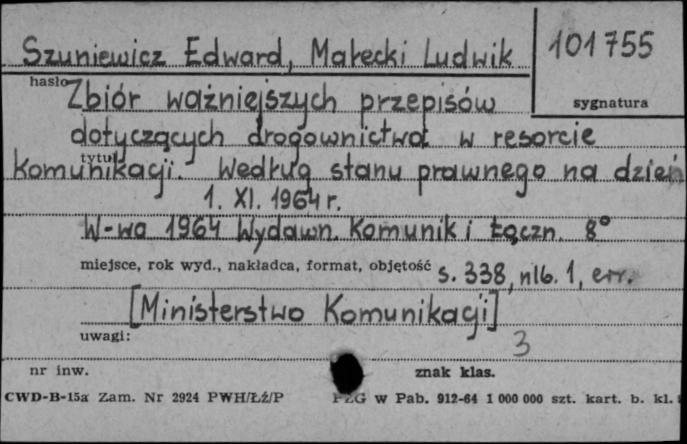 Szuniewicz Edward, Małecki Ludwik 101755
hasło
Zbiór ważniejszych przepisów
sygnatura
dotyczących drogownictwa w resorcie
tytuł
Komunikacji. Według stanu prawnego na dzień
1. XI. 1964 r.
W-wa 1964 Wydawn. Komunik i Łączn. 8°
miejsce, rok wyd., nakładca, format, objętość s. 338, nlb. 1, err.
[Ministerstwo Komunikacji]
uwagi:
3
nr inw. znak klas.
CWD-B-15a Zam. Nr 2924 PWH/ŁŹ/P PZG w Pab. 912-64 1 000 000 szt. kart. b. kl.